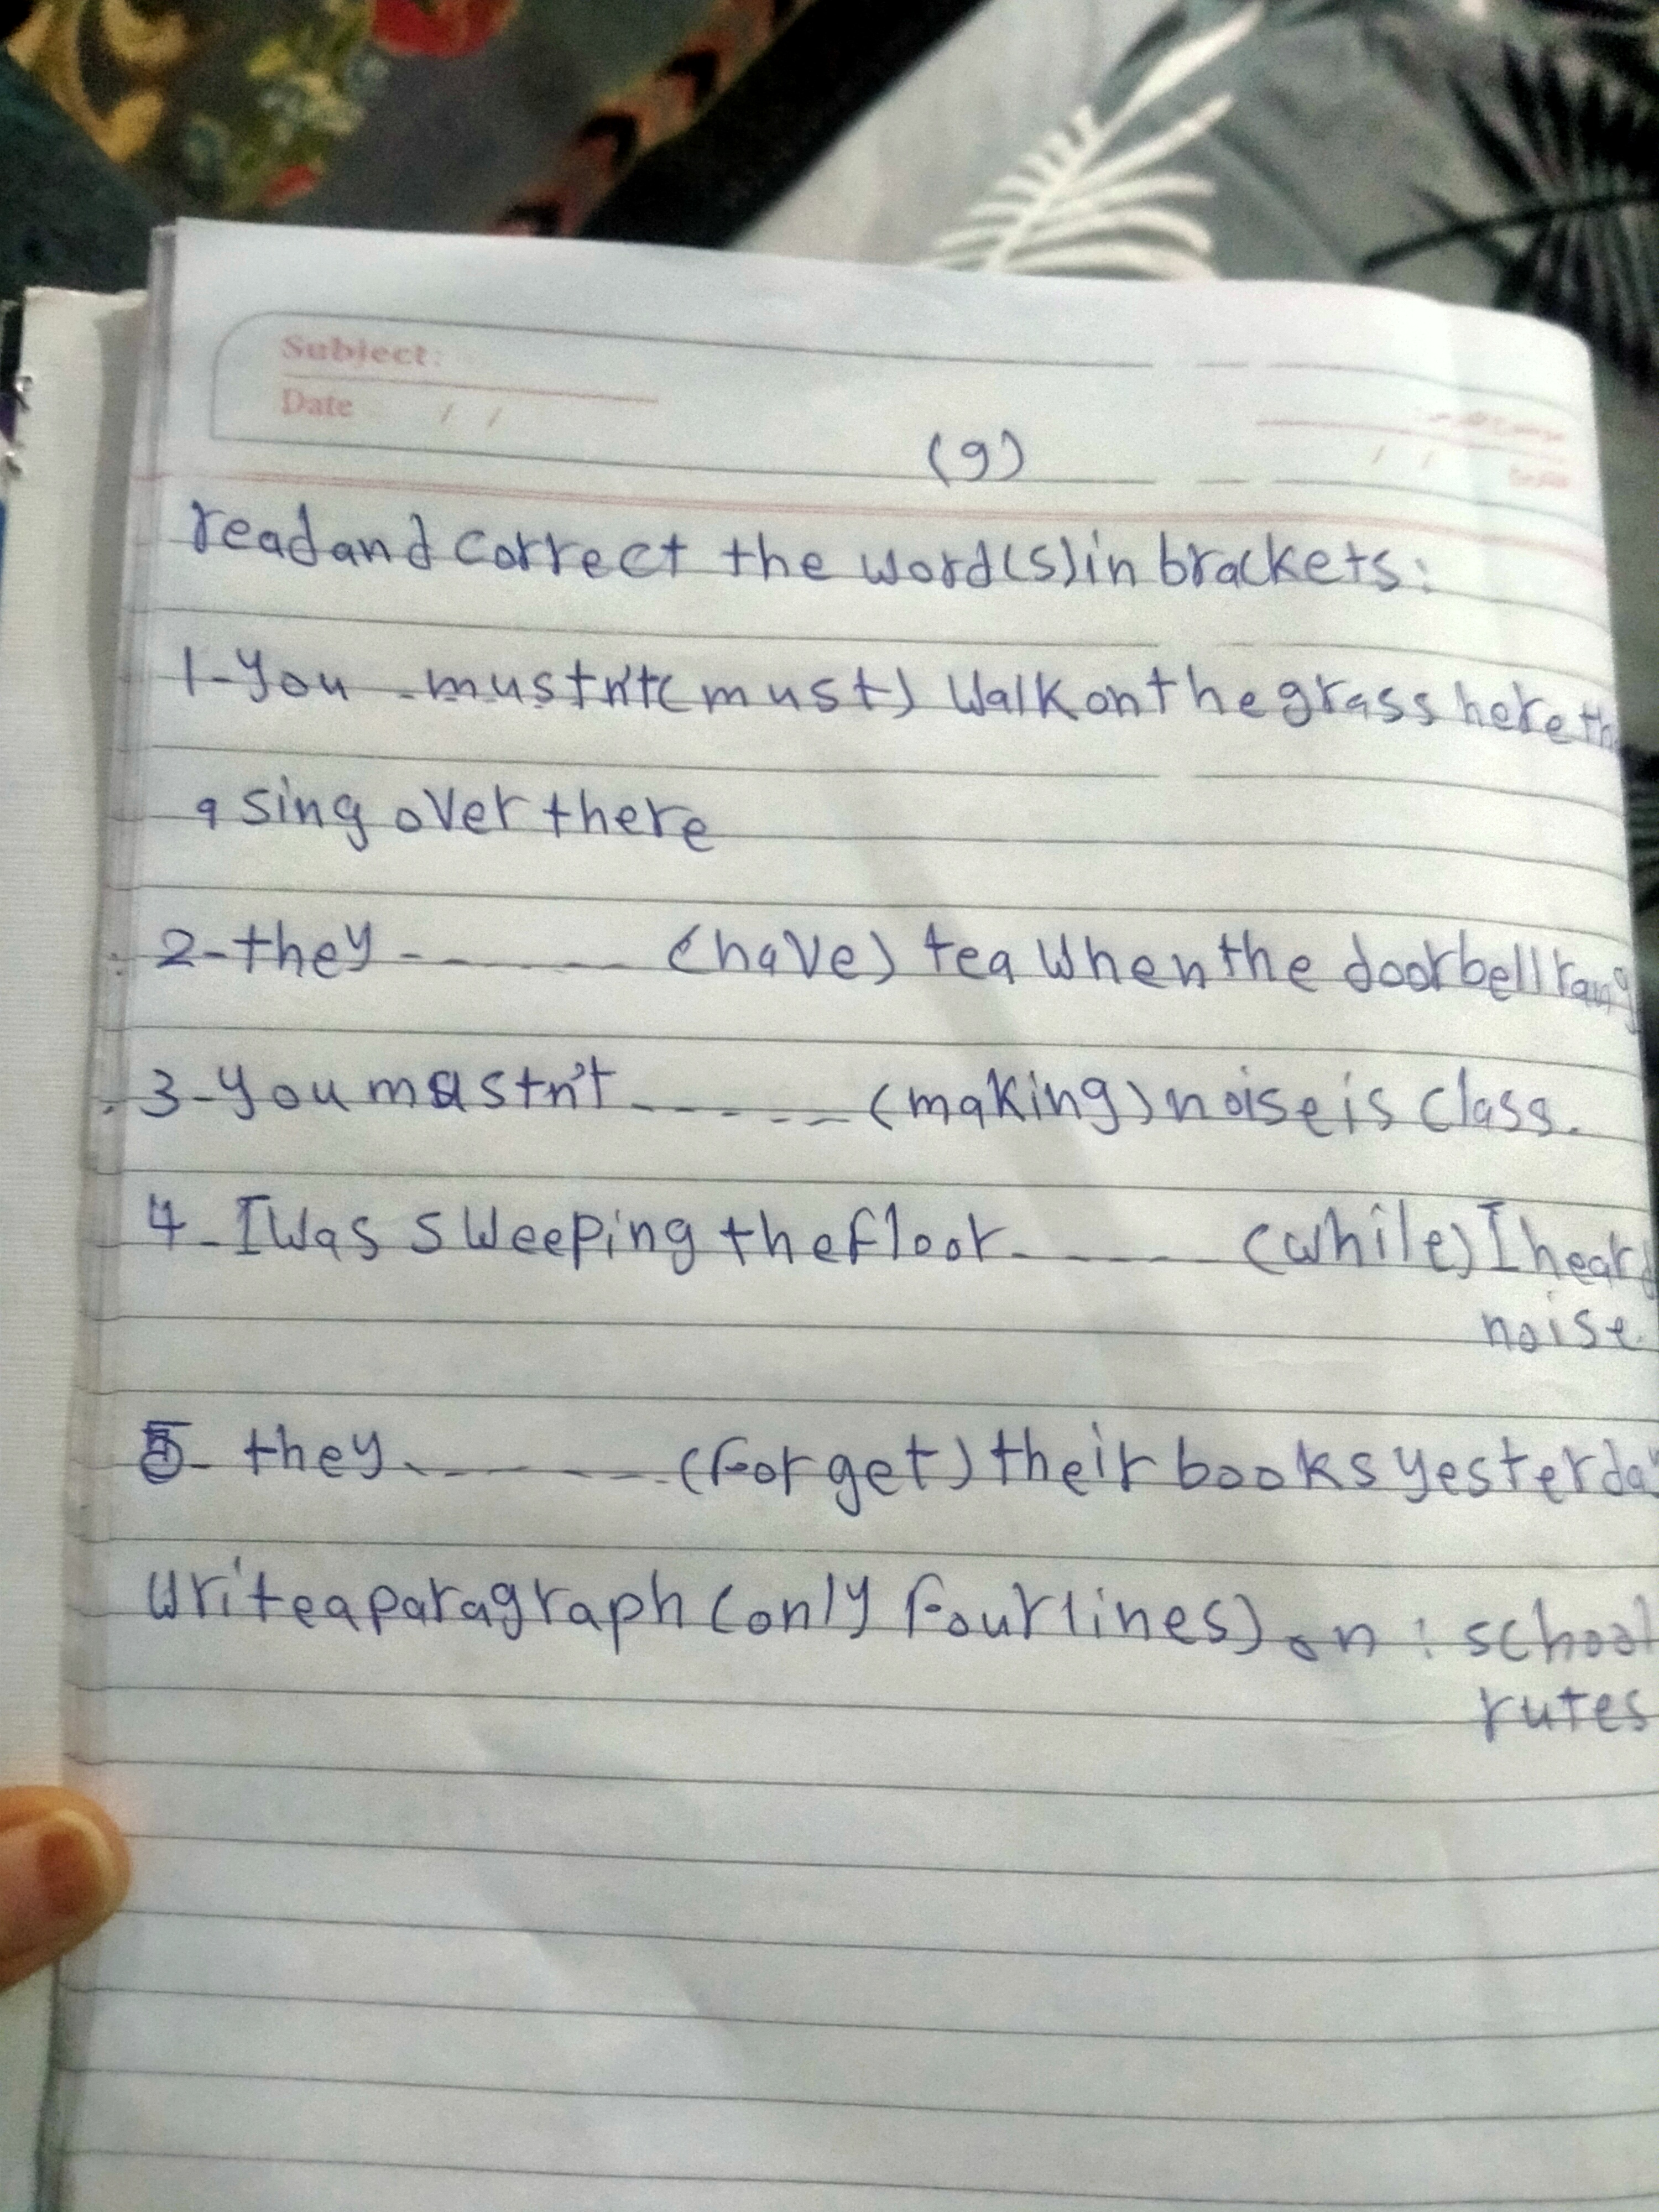 Subject:
Date / /
(9)
read and correct the word(s) in brackets:
1- you mustn't (must) walk on the grass here
a sing over there
2- they ------ (have) tea when the doorbell rang
3- you mustn't ----- (making) noise is class.
4- I was sweeping the floor ----- (while) I heard
noise.
5- they ------ (forget) their books yesterda
write a paragraph (only four lines) on : school
rutes